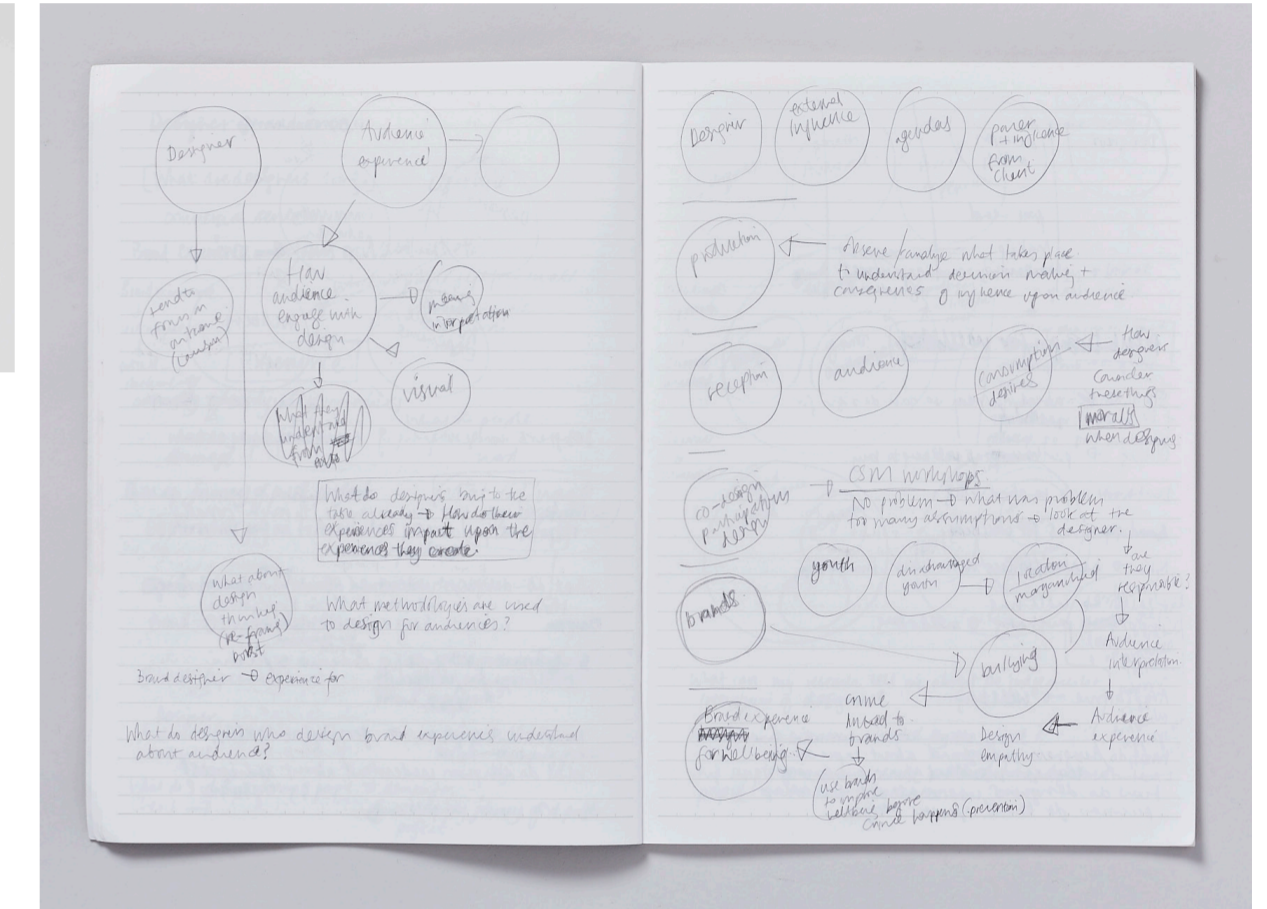 Designer
Audience
experience
tend to
focus on
outcome
How
audience
engage with
design
meaning
interpretation
visual
What they
understand
from
What do designers bring to the
table already → How do their
experiences impact upon the
experiences they create.
What about
design
thinking
(re-frame)
What methodologies are used
to design for audiences?
Brand designer → experience for
What do designers who design brand experience understand
about audience?
Designer
external
influence
agendas
power
+ influence
from
client
production
observe/analyse what takes place
to understand decision making +
consequences of influence upon audience
reception
audience
consumption
desires
How
designers
consider
these things
morals
when designing
co-design
participatory
design
→ CSM workshops.
No problem → what was problem
too many assumptions → look at the
designer.
are
they
responsible?
Audience
interpretation
Audience
experience
Design
empathy
brands
youth
disadvantaged
youth
location
marganilised
bullying
crime
linked to
brands
use brands
to improve
wellbeing before
crime happens (prevention)
Brand experience
for wellbeing